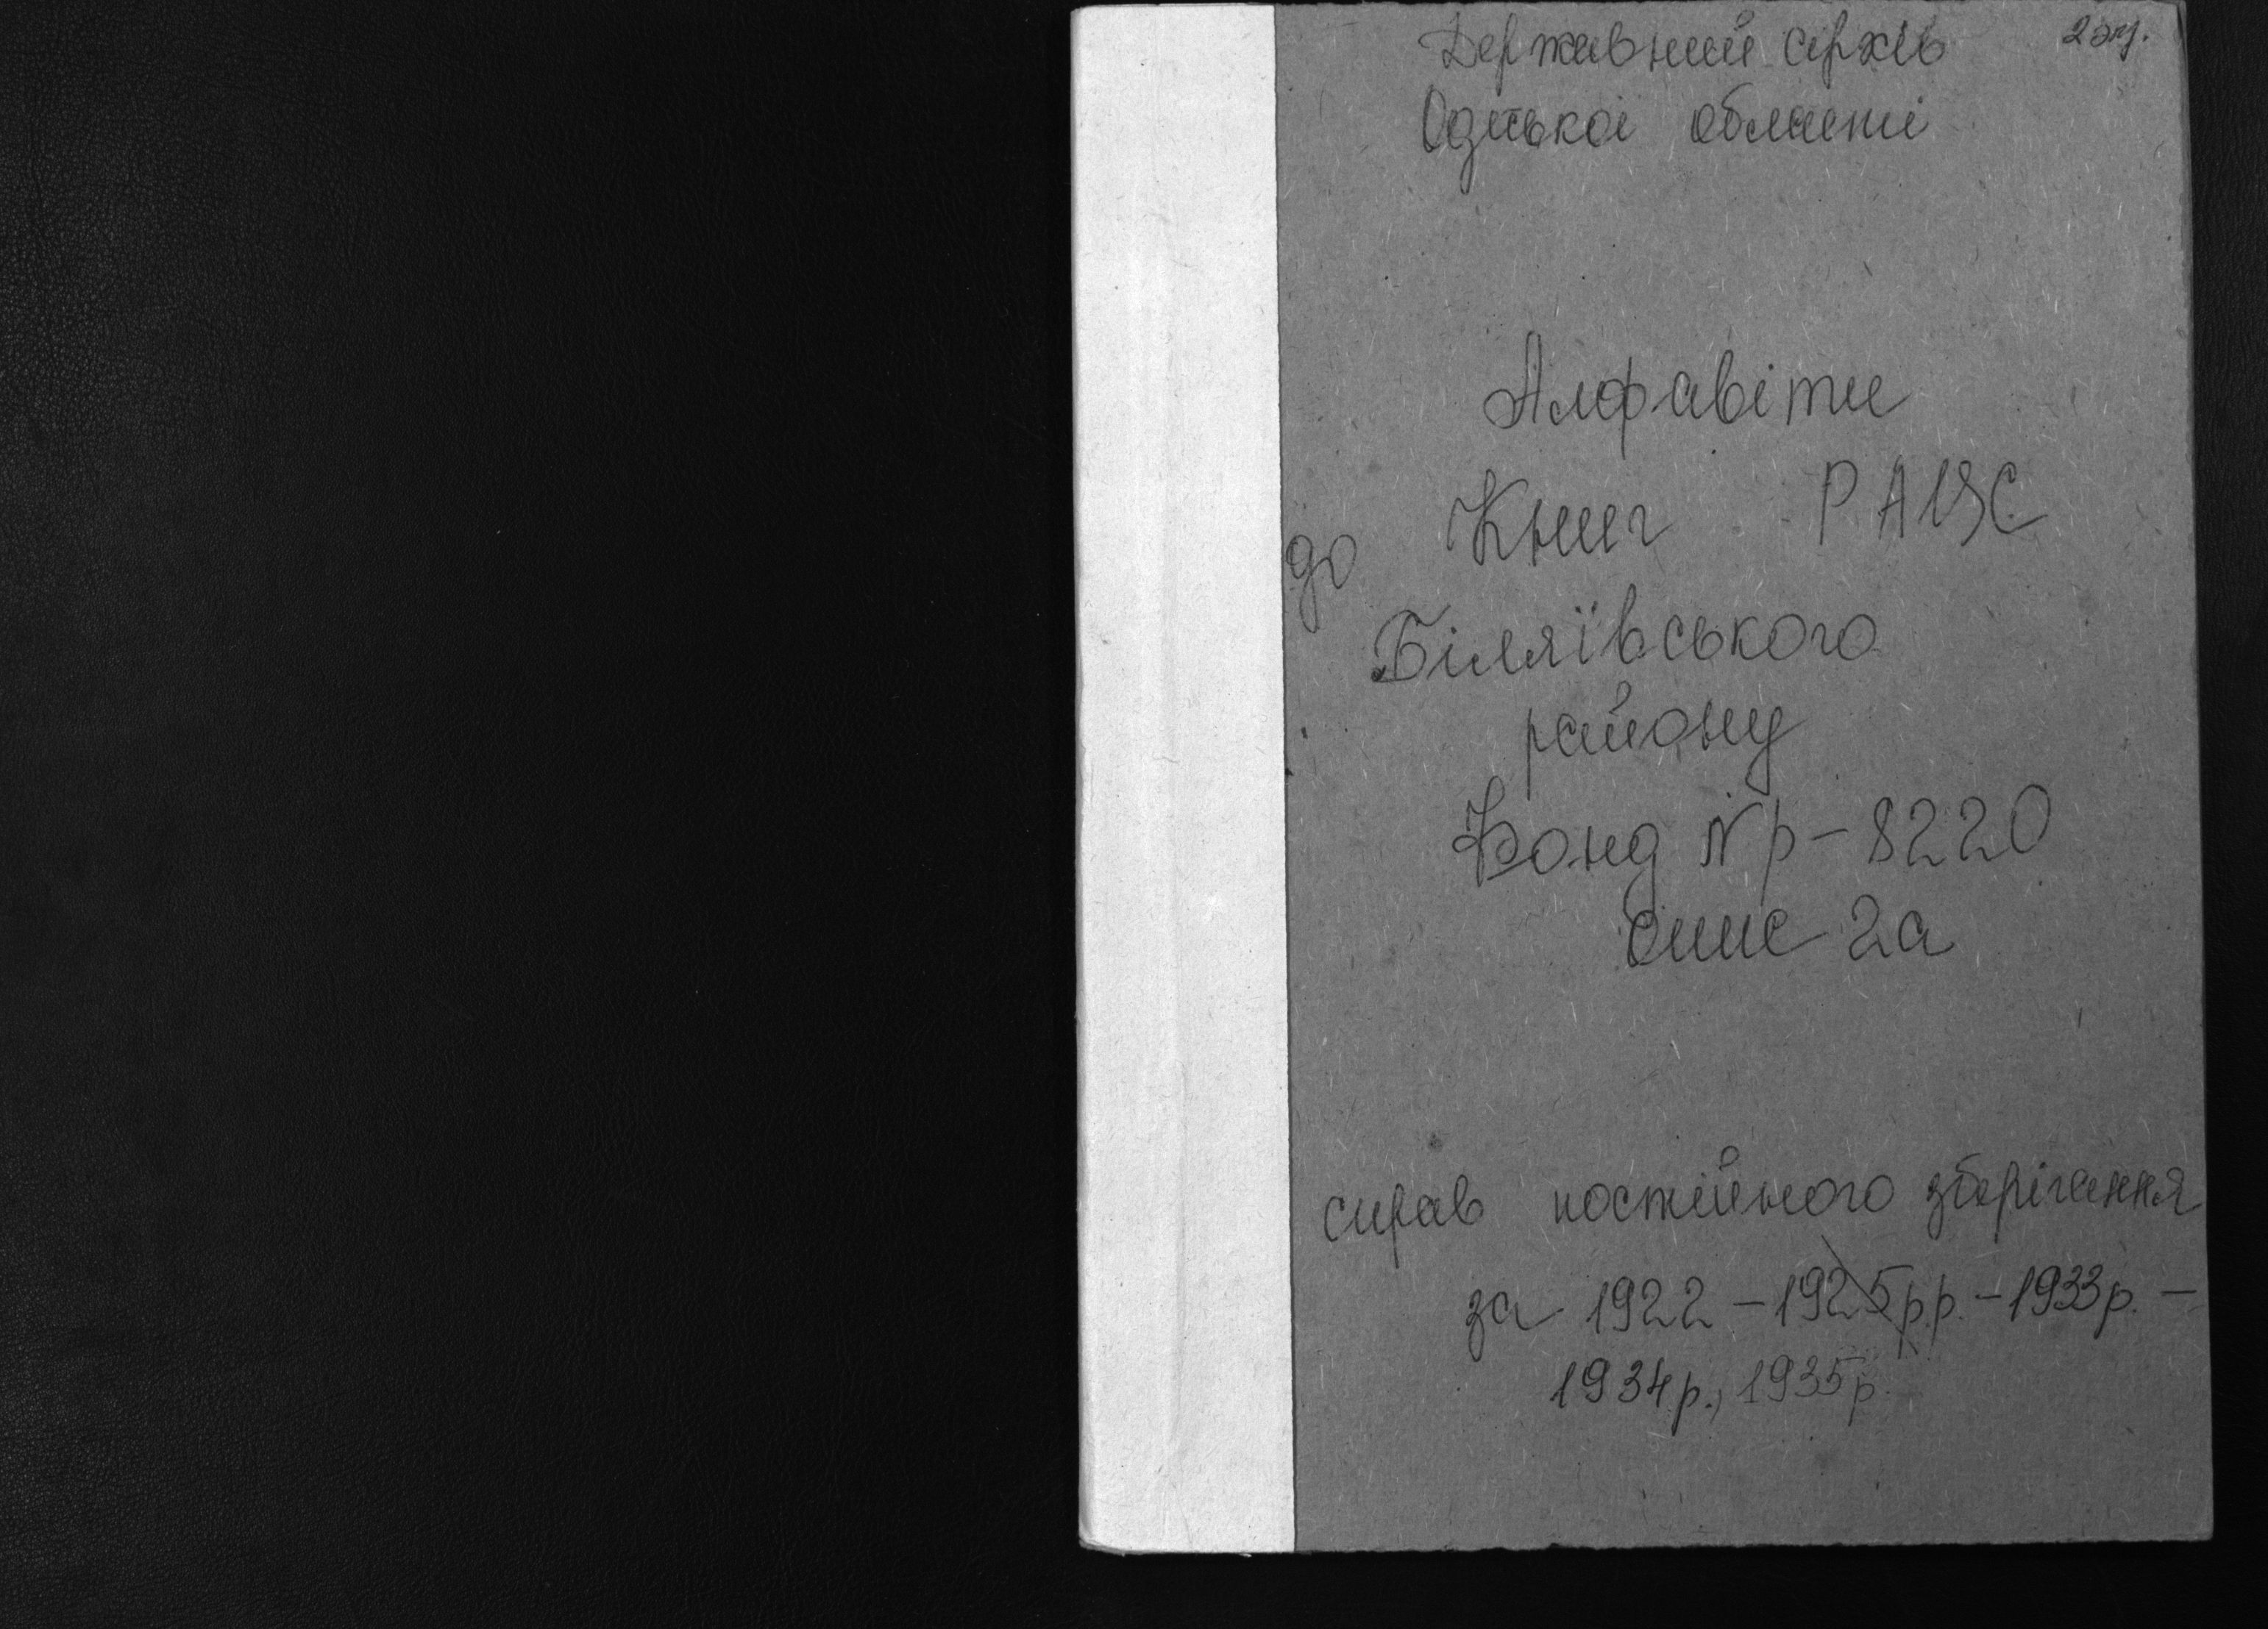 Державний архів 2 эк.
Одеської області
Алфавіти
до Книг РАЦС
Біляївського
району
Фонд № р-8220
опис 2а
справ постійного зберігання
за 1922 - 1925 р.р. - 1933р. -
1934р., 1935р.